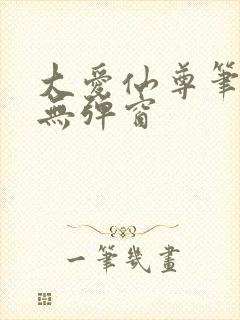 大愛仙尊筆
無彈窗
一筆幾畫